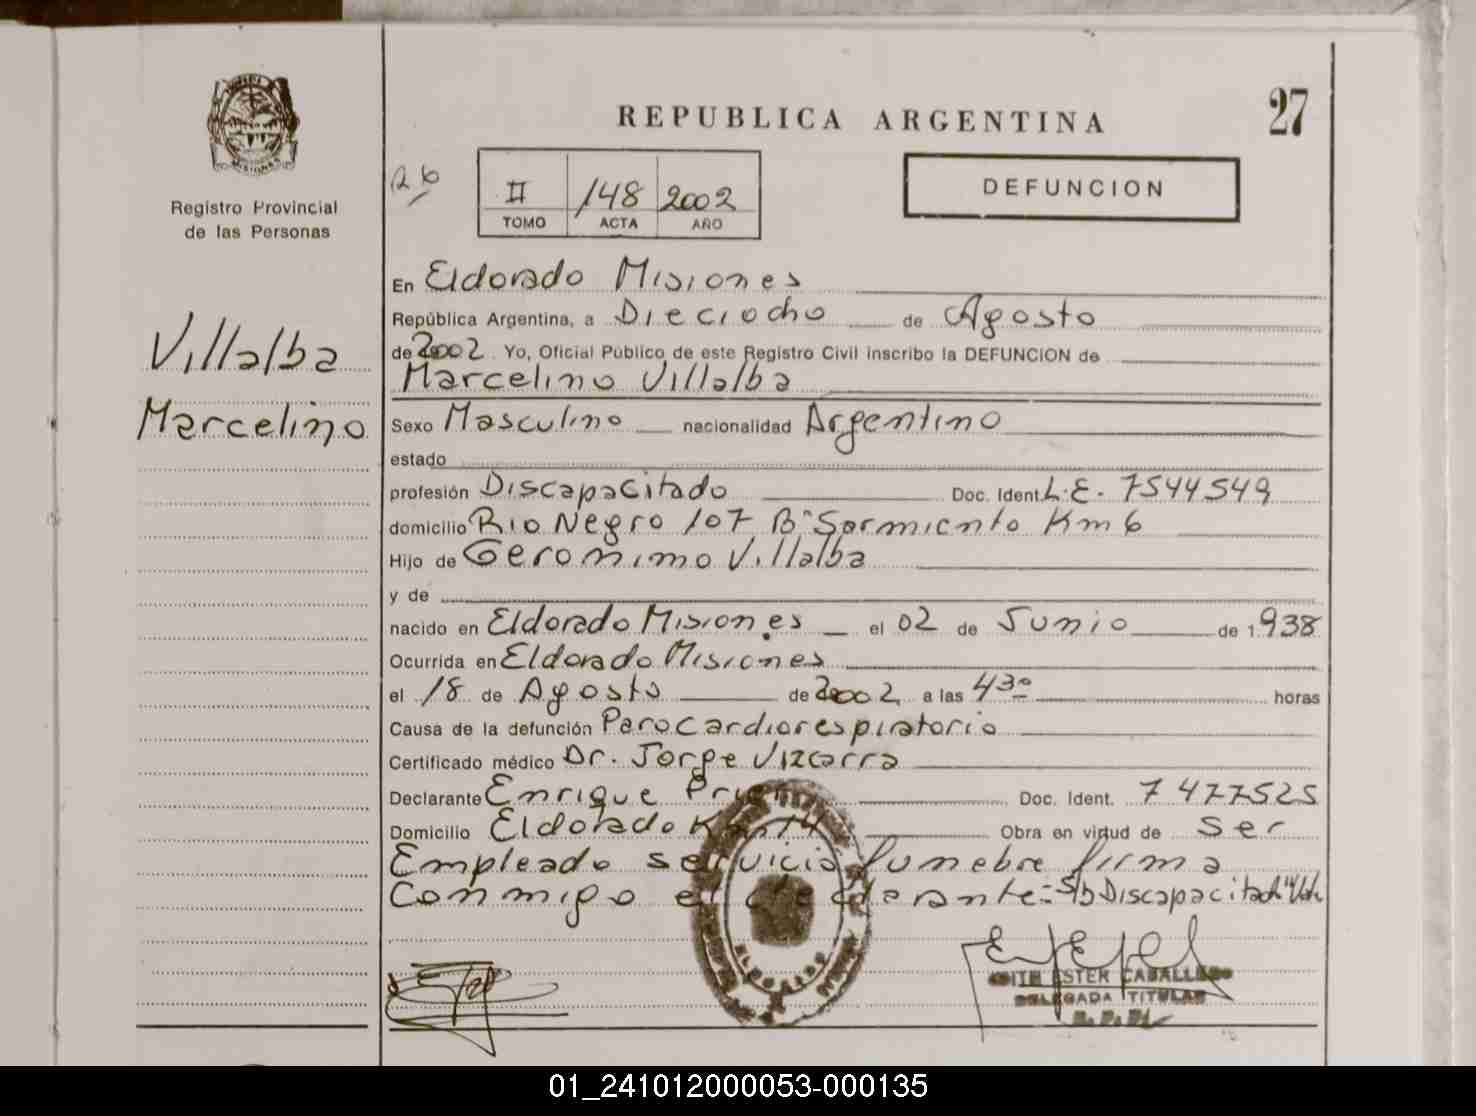 REPUBLICA ARGENTINA
27
Registro Provincial
de las Personas
II 148 2002
TOMO ACTA AÑO
DEFUNCION
Villalba
Marcelino
En Eldorado Misiones
República Argentina, a Dieciocho de Agosto
de 2002. Yo, Oficial Público de este Registro Civil inscribo la DEFUNCION de
Marcelino Villalba
Sexo Masculino nacionalidad Argentino
estado
profesión Discapacitado Doc. Ident. L.E. 7544549
domicilio Rio Negro 107 Bº Sarmiento Km 6
Hijo de Geronimo Villalba
y de
nacido en Eldorado Misiones el 02 de Junio de 1.938
Ocurrida en Eldorado Misiones
el 18 de Agosto de 2002 a las 4 30 horas
Causa de la defunción Parocardiorespiratorio
Certificado médico Dr. Jorge Vizcarra
Declarante Enrique Doc. Ident. 7 477525
Domicilio Eldorado Km 14 Obra en virtud de Ser
Empleado servicio funebre firma
Conmigo el declarante = S/b Discapacitado
ELDORADO
EDITH ESTER CABALLERO
DELEGADA TITULAR
01_241012000053-000135